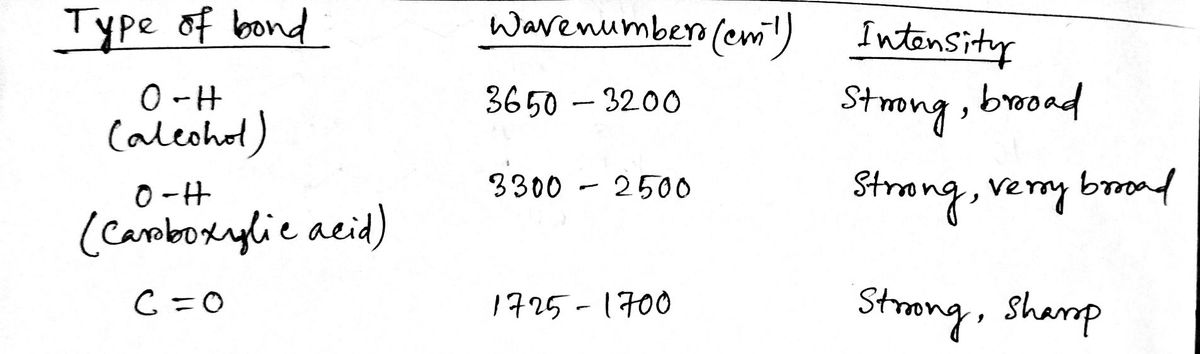 Type of bond Wavenumber (cm⁻¹) Intensity
O-H 3650 - 3200 Strong, broad
(alcohol)
O-H 3300 - 2500 Strong, very broad
(Carboxylic acid)
C=O 1725-1700 Strong, Sharp